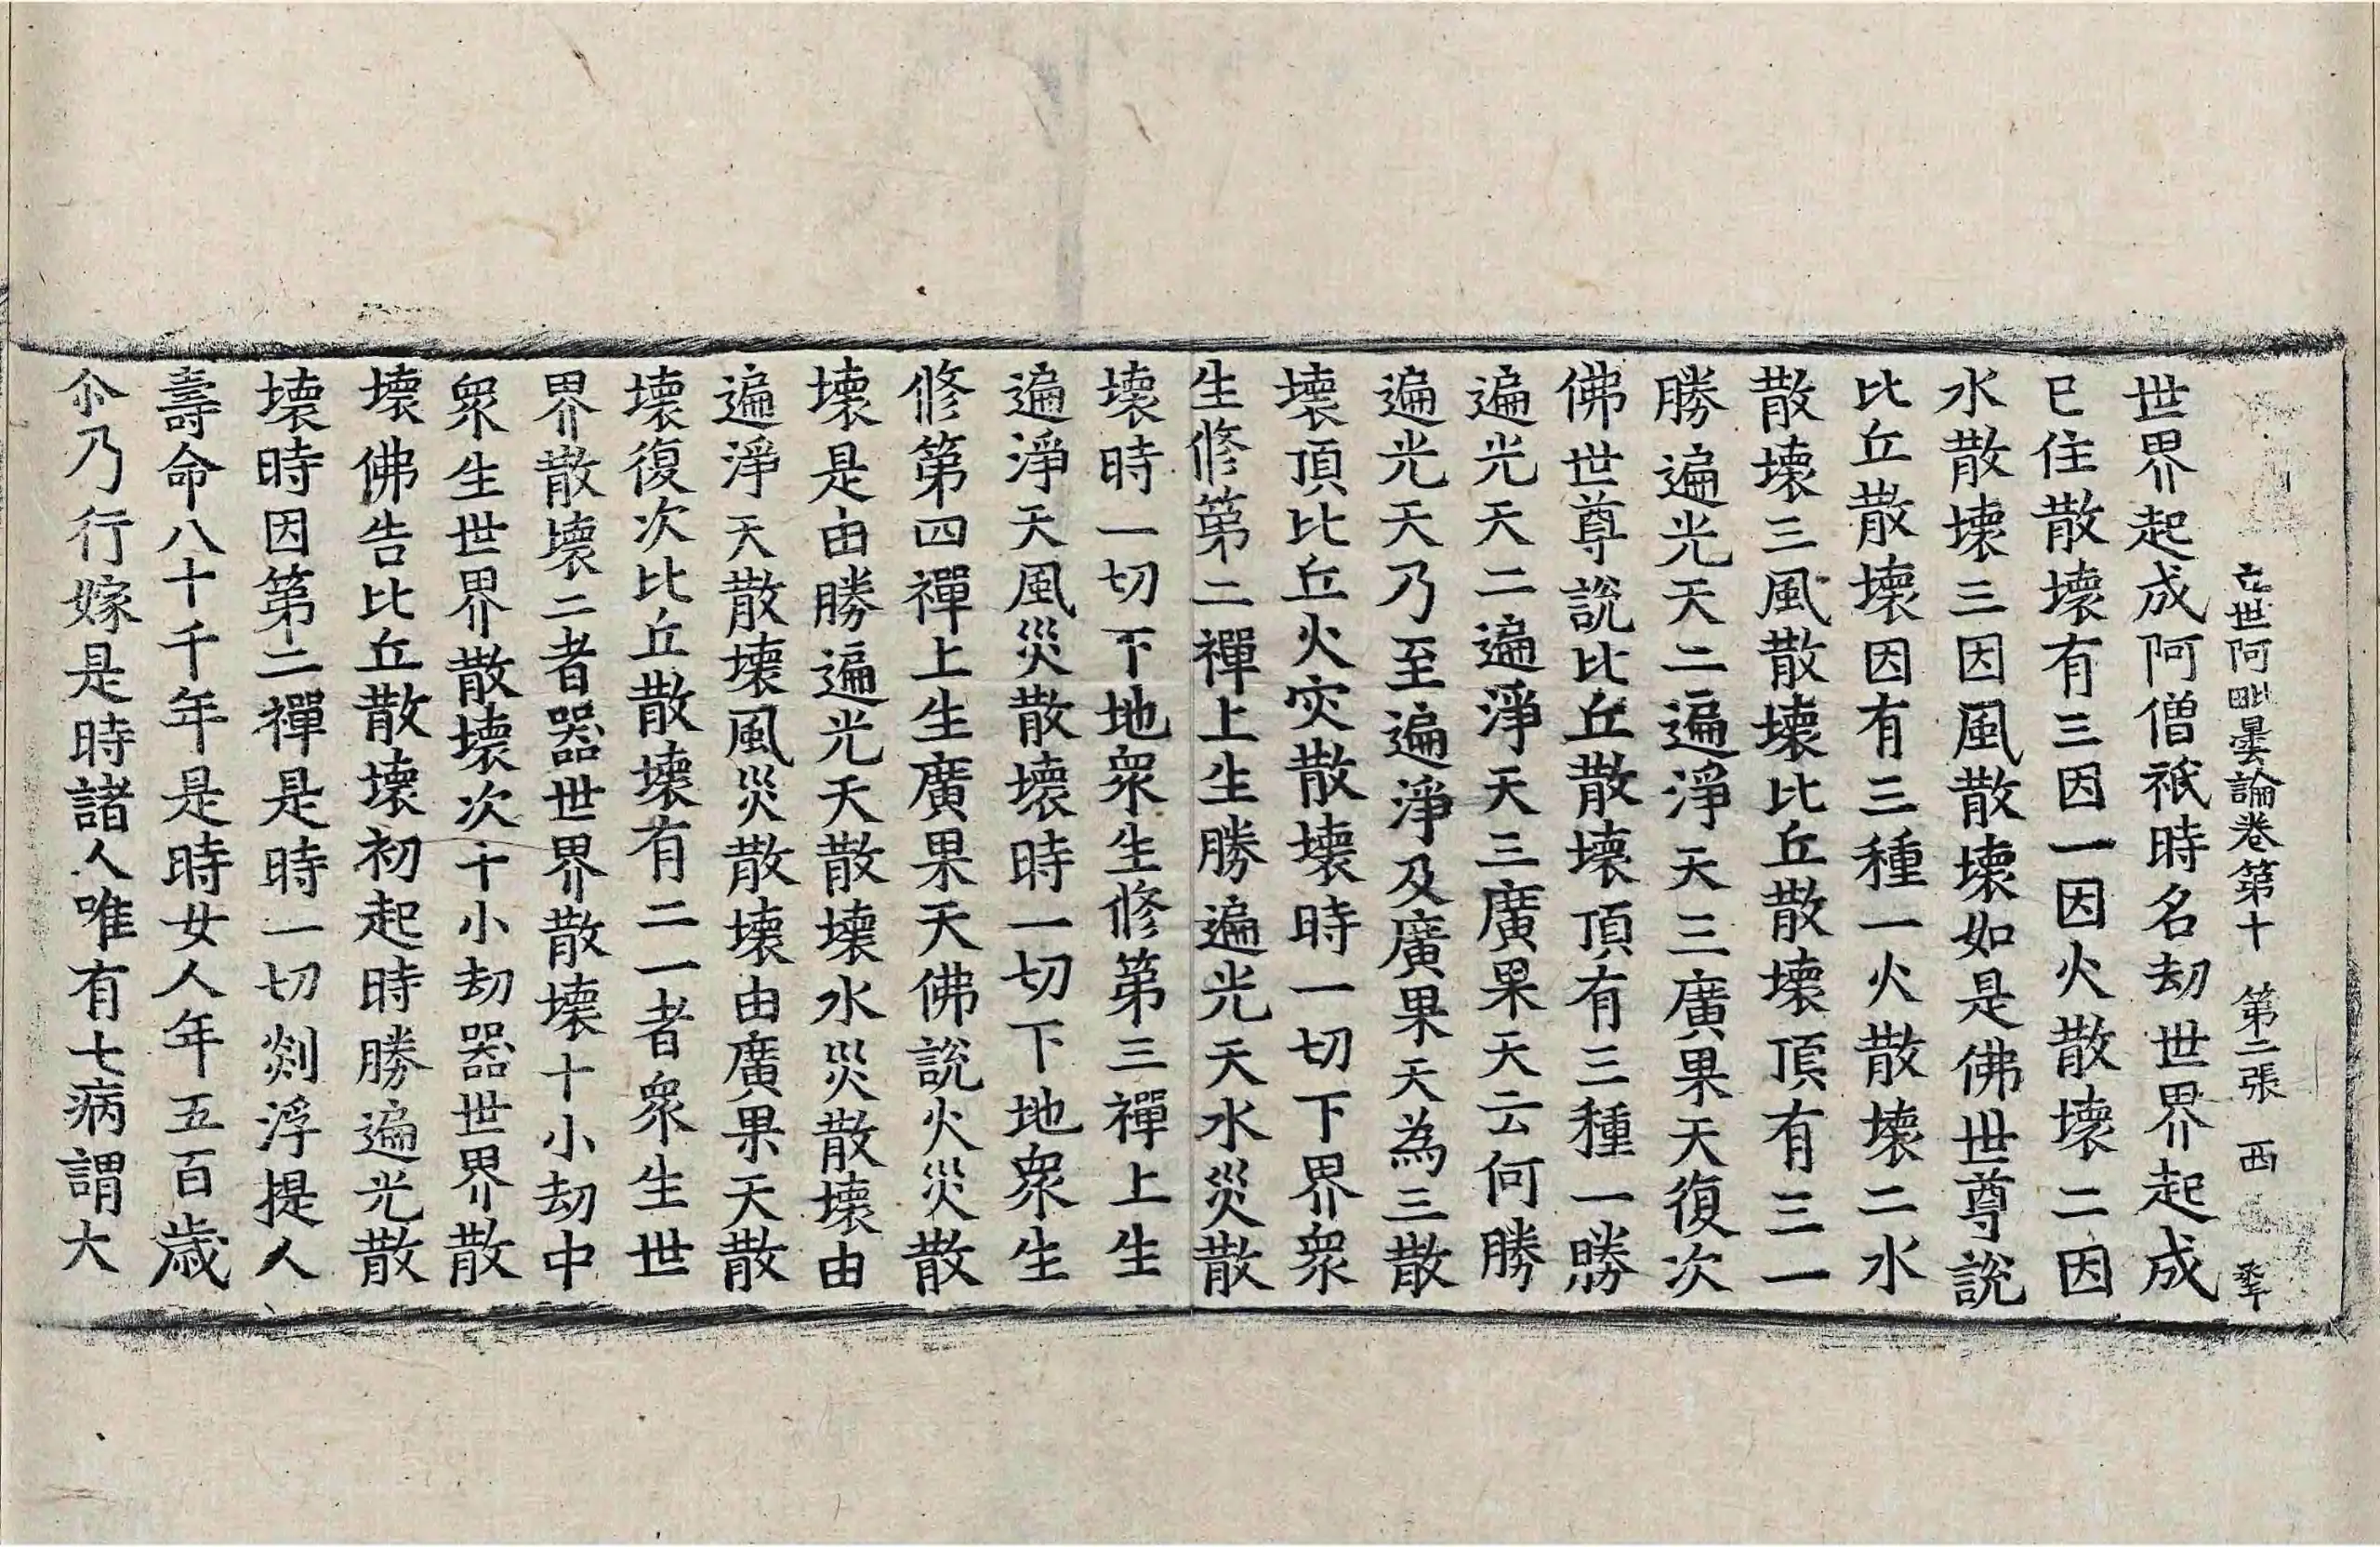 立世阿毗曇論卷第十 第二張 西
世界起成阿僧祇時名劫世界起成
已住散壞有三因一因火散壞二因
水散壞三因風散壞如是佛世尊說
比丘散壞因有三種一火散壞二水
散壞三風散壞比丘散壞頂有三一
勝遍光天二遍淨天三廣果天復次
佛世尊說比丘散壞頂有三種一勝
遍光天二遍淨天三廣果天云何勝
遍光天乃至遍淨及廣果天為三散
壞頂比丘火灾散壞時一切下界衆
生修第二禪上生勝遍光天水災散
壞時一切下地衆生修第三禪上生
遍淨天風災散壞時一切下地衆生
修第四禪上生廣果天佛說火災散
壞是由勝遍光天散壞水災散壞由
遍淨天散壞風災散壞由廣果天散
壞復次比丘散壞有二一者衆生世
界散壞二者器世界散壞十小劫中
衆生世界散壞次十小劫器世界散
壞佛告比丘散壞初起時勝遍光散
壞時因第二禪是時一切剡浮提人
壽命八十千年是時女人年五百歲
尒乃行嫁是時諸人唯有七病謂大